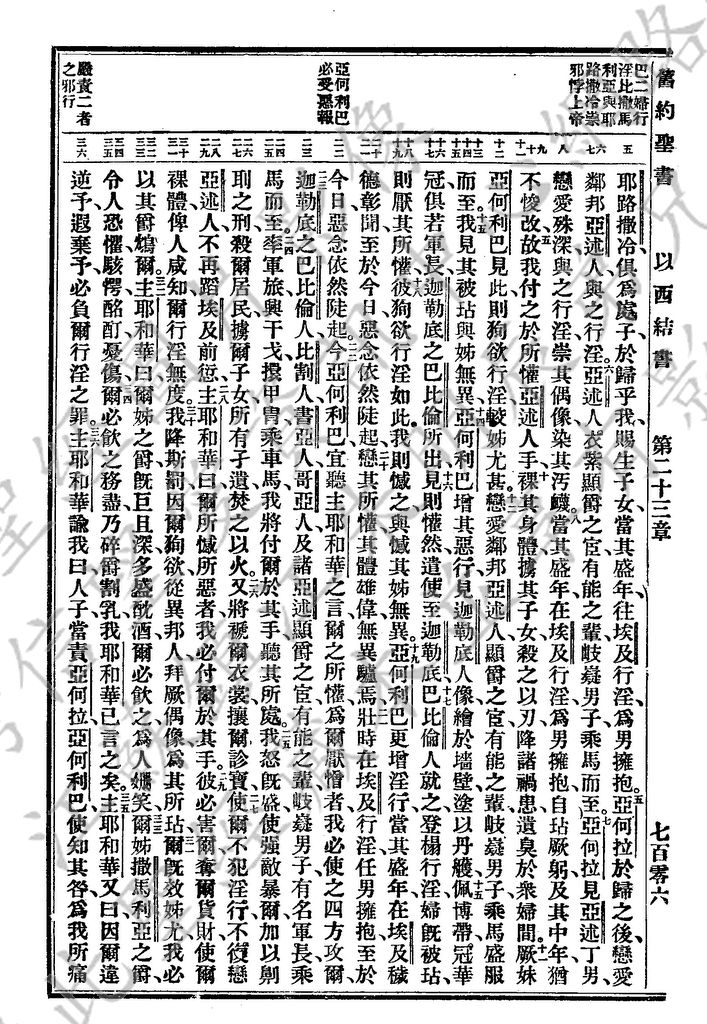 舊約聖書　以西結書　第二十三章　七百零六
巴二婦行
淫比撒馬
利亞與耶
路撒冷崇
邪悖上帝
亞何利巴
必受惡報
嚴責二者
之邪行
耶路撒冷俱爲處子於歸乎我賜生子女當其盛年往埃及行淫爲男擁抱亞何拉於歸之後戀愛
鄰邦亞述人與之行淫亞述人衣紫顯爵之宦有能之輩岐嶷男子乘馬而至亞何拉見亞述丁男
戀愛殊深與之行淫崇其偶像染其汚衊當其盛年在埃及行淫爲男擁抱自玷厥躬及其中年猶
不悛改故我付之於所懽亞述人手裸其身體擄其子女殺之以刃降諸禍患遺臭於衆婦間厥妹
亞何利巴見此則狥欲行淫較姊尤甚戀愛鄰邦亞述人顯爵之宦有能之輩岐嶷男子乘馬盛服
而至我見其被玷與姊無異亞何利巴增其惡行見迦勒底人像繪於墻壁塗以丹雘佩博帶冠華
冠俱若軍長迦勒底之巴比倫所出見則懽然遣使至迦勒底巴比倫人就之登榻行淫婦旣被玷
則厭其所懽彼狥欲行淫如此我則憾之與憾其姊無異亞何利巴更增淫行當其盛年在埃及穢
德彰聞至於今日惡念依然陡起戀其所懽其體雄偉無異驢焉壯時在埃及行淫任男擁抱至於
今日惡念依然陡起今亞何利巴宜聽主耶和華之言爾之所懽爲爾厭憎者我必使之四方攻爾
迦勒底之巴比倫人比割人書亞人哥亞人及諸亞述顯爵之宦有能之輩岐嶷男子有名軍長乘
馬而至率軍旅興干戈擐甲冑乘車馬我將付爾於其手聽其所處我怒旣盛使强敵暴爾加以劓
刵之刑殺爾居民擄爾子女所有孑遺焚之以火又將褫爾衣裳攘爾珍寶使爾不犯淫行不復戀
亞述人不再蹈埃及前愆主耶和華曰爾所憾所惡者我必付爾於其手彼必害爾奪爾貨財使爾
裸體俾人咸知爾行淫無度我降斯罰因爾狥欲從異邦人拜厥偶像爲其所玷爾旣效姊尤我必
以其爵鴆爾主耶和華曰爾姊之爵旣巨且深多盛酖酒爾必飲之爲人姍笑爾姊撒馬利亞之爵
令人恐懼駭愕酩酊憂傷爾必飲之務盡乃碎爵割乳我耶和華已言之矣主耶和華又曰因爾違
逆予遐棄予必負爾行淫之罪主耶和華諭我曰人子當責亞何拉亞何利巴使知其咎爲我所痛